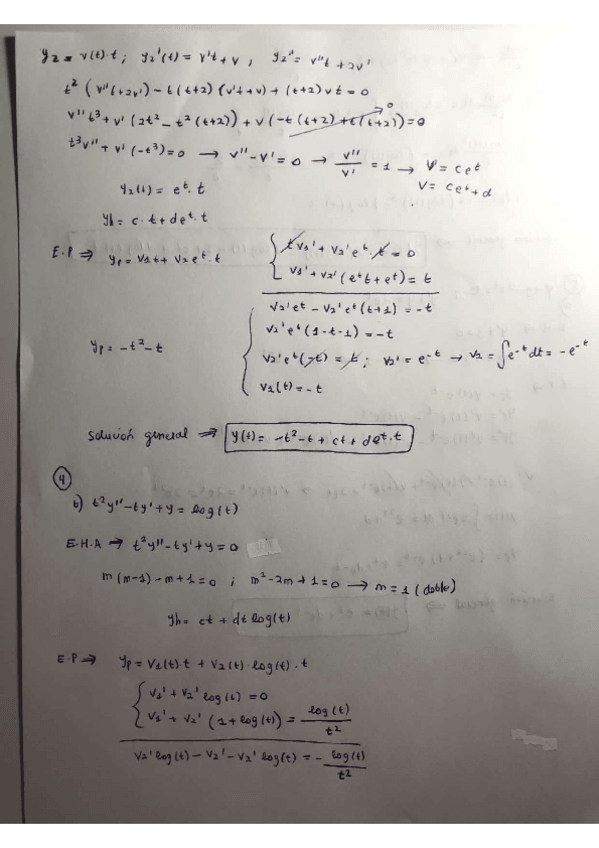 y2 = v(t)·t ; y2'(t) = v't + v , y2'' = v''t + 2v'
t² (v''t + 2v') - t(t+2) (v't + v) + (t+2) v t = 0
v'' t³ + v' (2t² - t² (t+2)) + v (-t (t+2) + t(t+2)) = 0
0
t³v'' + v' (-t³) = 0 → v'' - v' = 0 → v''/v' = 1 → v' = ce^t
v = ce^t + d
y2(t) = e^t · t
yh = c·t + de^t·t
E.P ⇒ yp = v1 t + v2 e^t · t
{ t v1' + v2' e^t · t = 0
v1' + v2' (e^t t + e^t) = t
v2' e^t - v2' e^t (t+1) = -t
v2' e^t (1 - t - 1) = -t
yp = -t² - t
v2' e^t (-t) = t ; v2' = e^-t → v2 = ∫e^-t dt = -e^-t
v1(t) = -t
solución general ⇒ y(t) = -t² - t + ct + de^t·t
4
b) t²y'' - ty' + y = log(t)
E.H.A ⇒ t²y'' - ty' + y = 0
m(m-1) - m + 1 = 0 ; m² - 2m + 1 = 0 → m = 1 (doble)
yh = ct + dt log(t)
E.P ⇒ yp = v1(t)·t + v2(t)·log(t)·t
{ v1' + v2' log(t) = 0
v1' + v2' (1 + log(t)) = log(t)/t²
v2' log(t) - v2' - v2' log(t) = - log(t)/t²